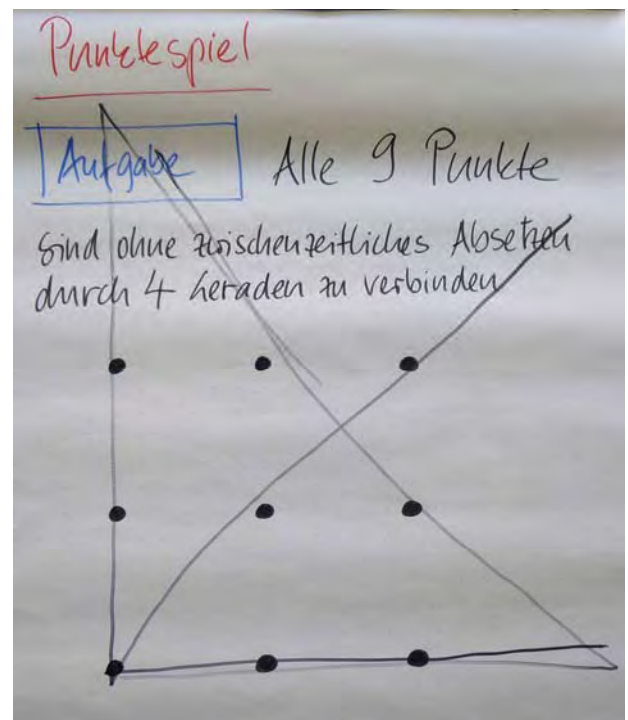 Punktespiel
Aufgabe Alle 9 Punkte
sind ohne zwischenzeitliches Absetzen
durch 4 Geraden zu verbinden